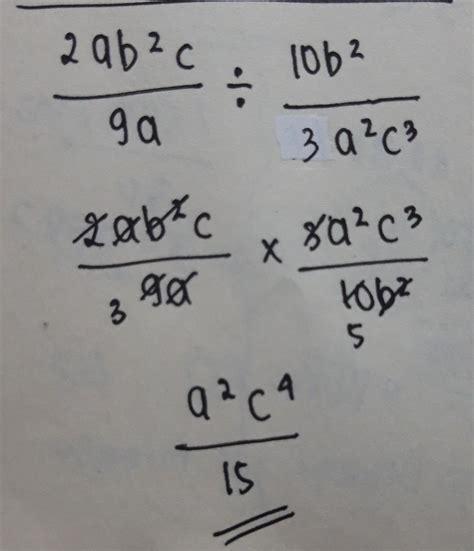 2ab²c/9a ÷ 10b²/3a²c³
2ab²c/3 9a × 3a²c³/10b² 5
a²c⁴/15